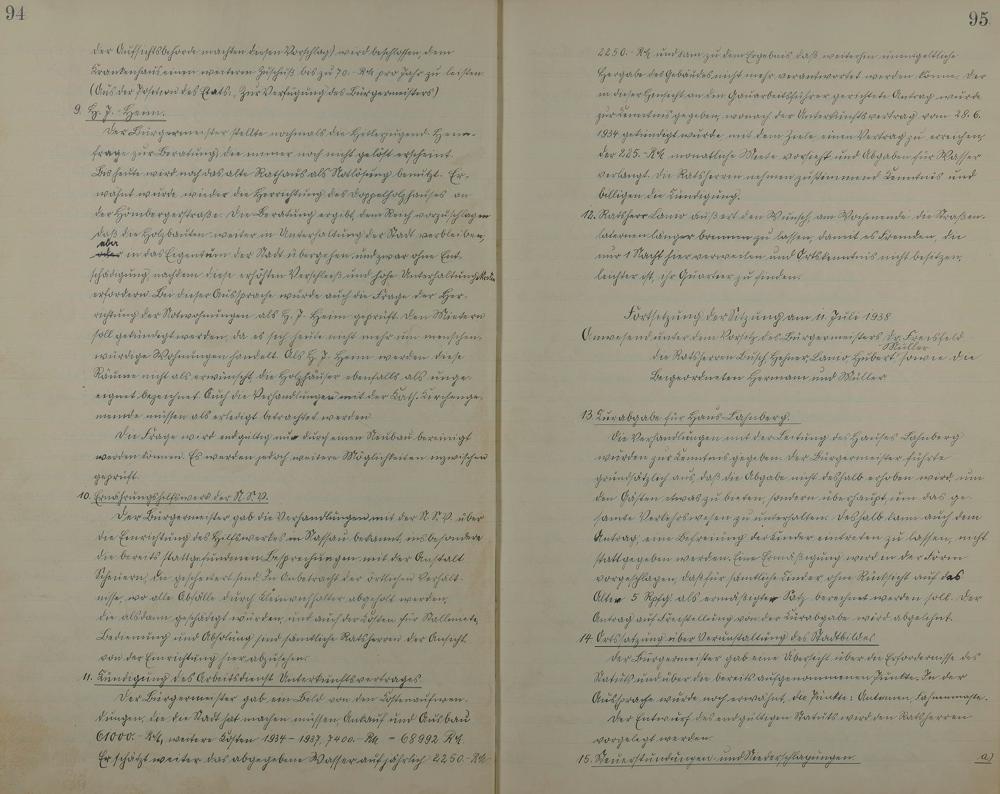 94
der Aufsichtsbehörde machten diesen Vorschlag) wird beschlossen, dem
Krankenhaus einen weiteren Zuschuß bis zu 70.- RM. pro Jahr zu leisten
(Aus der Position des Etats: Zur Verfügung des Bürgermeisters)
9. H. J.-Heim.
Der Bürgermeister stellte nochmals die Hitlerjugend-Heim-
frage zur Beratung, die immer noch nicht gelöst erscheint.
Bis heute wird noch das alte Rathaus als Notlösung benützt. Er-
wähnt wurde wieder die Herrichtung des Doppelholzhauses an
der Hömbergerstraße. Die Beratung ergibt, dem Reich vorzuschlagen
daß die Holzbauten weiter in Unterhaltung der Stadt verbleiben,
aber
in das Eigentum der Stadt übergehen, und zwar ohne Ent-
schädigung, nachdem diese erhöhten Verschleiß und hohe Unterhaltungskosten
erfordern. Bei dieser Aussprache wurde auch die Frage der Her-
richtung der Notwohnungen als H. J.-Heim geprüft. Den Mietern
soll gekündigt werden, da es sich heute nicht mehr um menschen-
würdige Wohnungen handelt. Als H. J. Heim werden diese
Räume nicht als erwünscht, die Holzhäuser ebenfalls als unge-
eignet bezeichnet. Auch die Verhandlungen mit der Kath. Kirchenge-
meinde müssen als erledigt betrachtet werden.
Die Frage wird endgültig nur durch einen Neubau bereinigt
werden können. Es werden jedoch weitere Möglichkeiten inzwischen
geprüft.
10. Ernährungshilfswerk der N. S. V.
Der Bürgermeister gab die Verhandlungen mit der N. S. V. über
die Einrichtung des Hilfswerkes in Nassau bekannt, insbesondere
die bereits stattgefundenen Besprechungen mit der Anstalt
Scheuern, die gescheitert sind. In Anbetracht der örtlichen Verhält-
nisse, wo alle Abfälle durch Kleinviehhalter abgeholt werden,
die alsdann geschädigt würden, und auch der Kosten für Stallmiete,
Bedienung und Abholung sind sämtliche Ratsherren der Ansicht
von der Einrichtung hier abzusehen.
11. Kündigung des Arbeitsdienst Unterkunftsvertrages
Der Bürgermeister gab ein Bild von den Kostenaufwen-
dungen, die die Stadt hat machen müssen, Ankauf und Ausbau
61000.- RM, weitere Kosten 1934 - 1937, 7400.- RM - 68992 RM.
Er schätzt weiter das abgegebene Wasser auf jährlich 2250.- RM
95
2250.- RM. und kam zu dem Ergebnis, daß weiterhin unentgeltliche
Hergabe des Gebäudes nicht mehr verantwortet werden könne. Der
in dieser Hinsicht an den Gauarbeitsführer gerichtete Antrag wurde
zur Kenntnis gegeben, wonach der Unterkunftsvertrag vom 28.6.
1934 gekündigt wurde mit dem Ziele einen Vertrag zu erreichen,
der 225.- RM. monatliche Miete vorsieht und Abgaben für Wasser
verlangt. Die Ratsherren nehmen zustimmend Kenntnis und
billigen die Kündigung.
12. Ratsherr Lanio äußert den Wunsch, am Wochenende die Straßen-
laternen länger brennen zu lassen, damit es Fremden, die
nur 1 Nacht hier verweilen und Ortskenntnis nicht besitzen,
leichter ist, ihr Quartier zu finden.
Fortsetzung der Sitzung am 11. Juli 1938
Anwesend unter dem Vorsitz des Bürgermeisters Dr. Freisfeld
Müller
die Ratsherren Busch, Hefner, Lanio, Hubert sowie die
Beigeordneten Hermann und Müller.
13. Kurabgabe für Haus-Lahnberg.
Die Verhandlungen mit der Leitung des Hauses Lahnberg
wurden zur Kenntnis gegeben. Der Bürgermeister führte
grundsätzlich aus, daß die Abgabe nicht deshalb erhoben wird, um
den Gästen etwas zu bieten, sondern überhaupt, um das ge-
samte Verkehrswesen zu unterhalten. Deshalb kann auch dem
Antrag, eine Befreiung der Kinder eintreten zu lassen, nicht
stattgegeben werden. Eine Ermäßigung wird in der Form
vorgeschlagen, daß für sämtliche Kinder ohne Rücksicht auf das
Alter 5 Rpfg. als ermäßigter Satz berechnet werden soll. Der
Antrag auf Freistellung von der Kurabgabe wird abgelehnt.
14. Ortssatzung über Verunstaltung des Stadtbildes
Der Bürgermeister gab eine Übersicht über die Erfordernisse des
Statuts und über die bereits aufgenommenen Punkte. In der
Aussprache wurde noch erwähnt, die Punkte: Antennen, Fahnenmaste.
Der Entwurf des endgültigen Statuts wird den Ratsherren
vorgelegt werden.
15. Steuerstundungen und Niederschlagungen a)